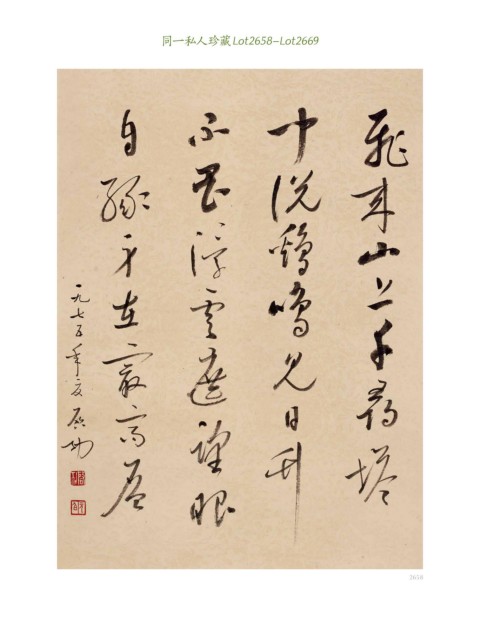 同一私人珍藏 Lot2658–Lot2669
飛来山上千尋塔
聞說鷄鳴見日升
不畏浮雲遮望眼
自緣身在最高層
一九七五年夏 啟功
2658